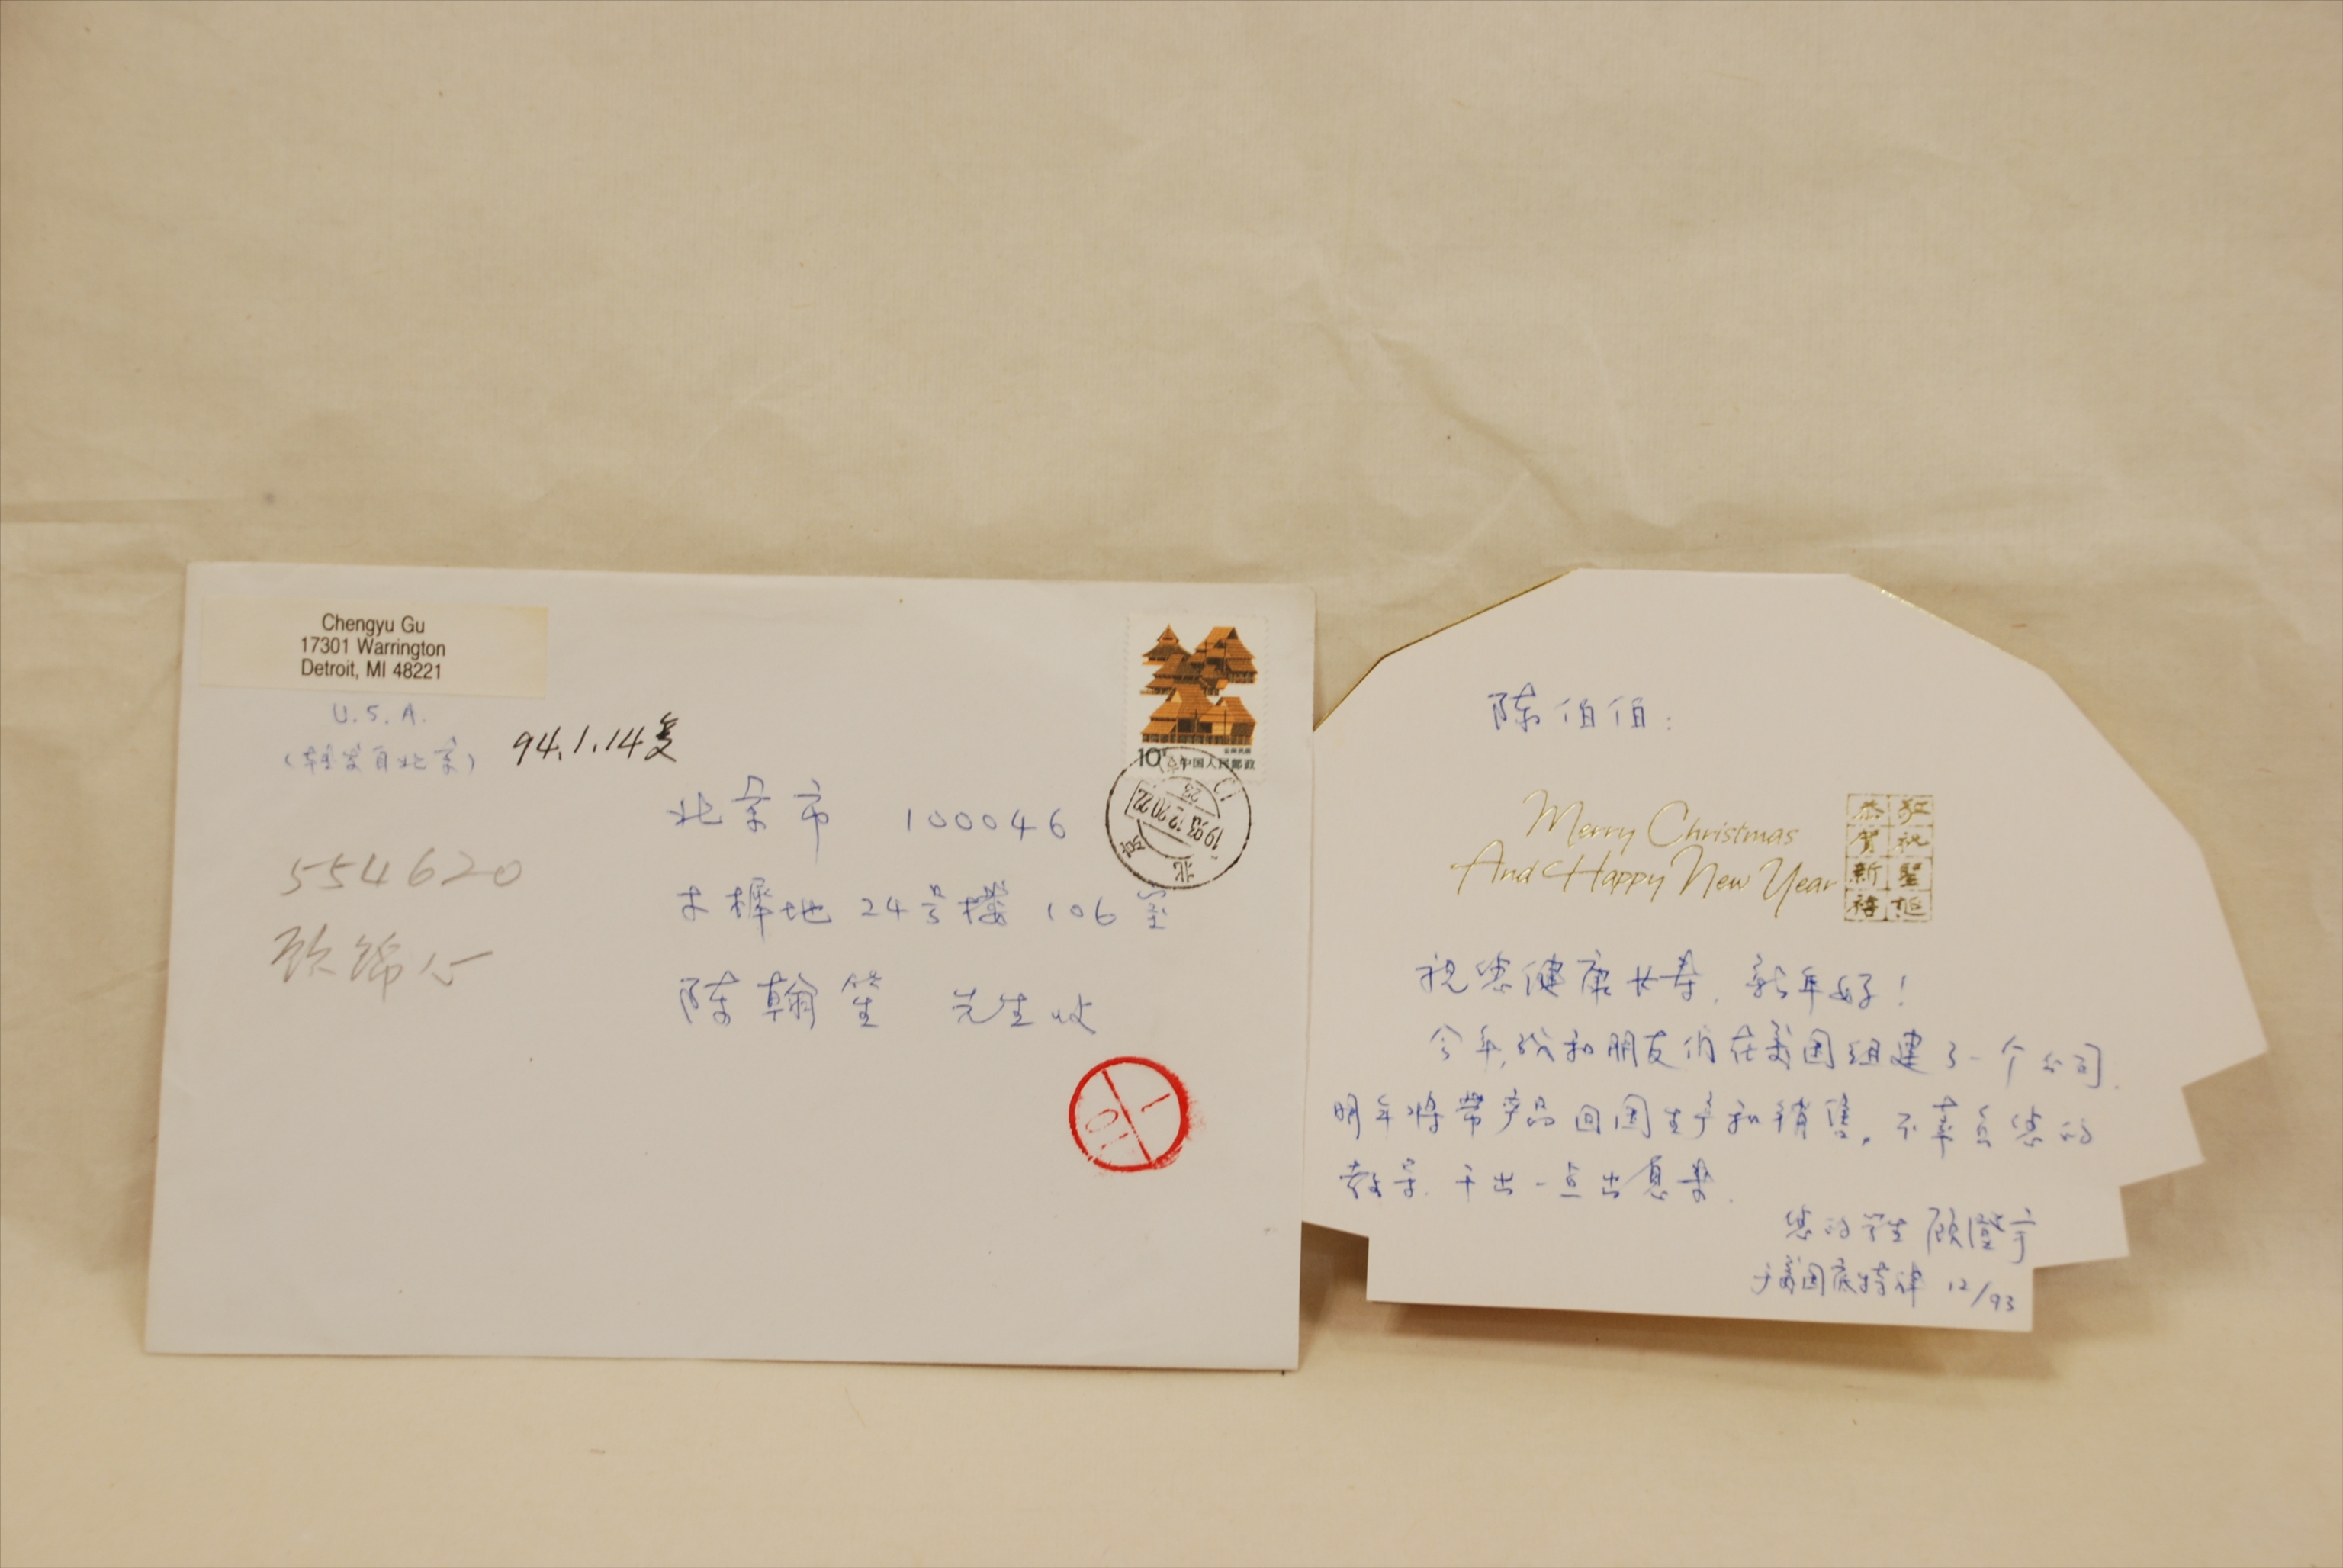 Chengyu Gu
17301 Warrington
Detroit, MI 48221
U.S.A.
(转发自北京)
94.1.14复
554620
顾锦心
10分
云南民居
中国人民邮政
北京
1993.12.20.22
北京市 100046
木樨地24号楼106室
陈翰笙 先生收
10
1
陈伯伯:
Merry Christmas
And Happy New Year
恭贺新禧
敬祝圣诞
祝您健康长寿,新年好!
今年,我和朋友们在美国组建了一个公司.
明年将带产品回国生产和销售。不辜负您的
教导.干出一点出息来.
您的学生 顾澄宇
于美国底特律 12/93